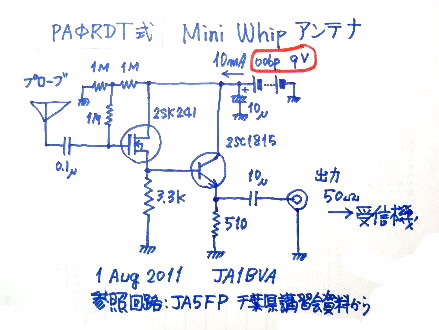 PAΦRDT式 Mini Whip アンテナ
10mA 006p 9V
プローブ
1M 1M
1M
2SK241
10μ
2SC1815
0.1μ
3.3K
10μ
510
出力
50Ω
→受信機
1 Aug 2011 JA1BVA
参照回路:JA5FP 千葉県講習会資料から